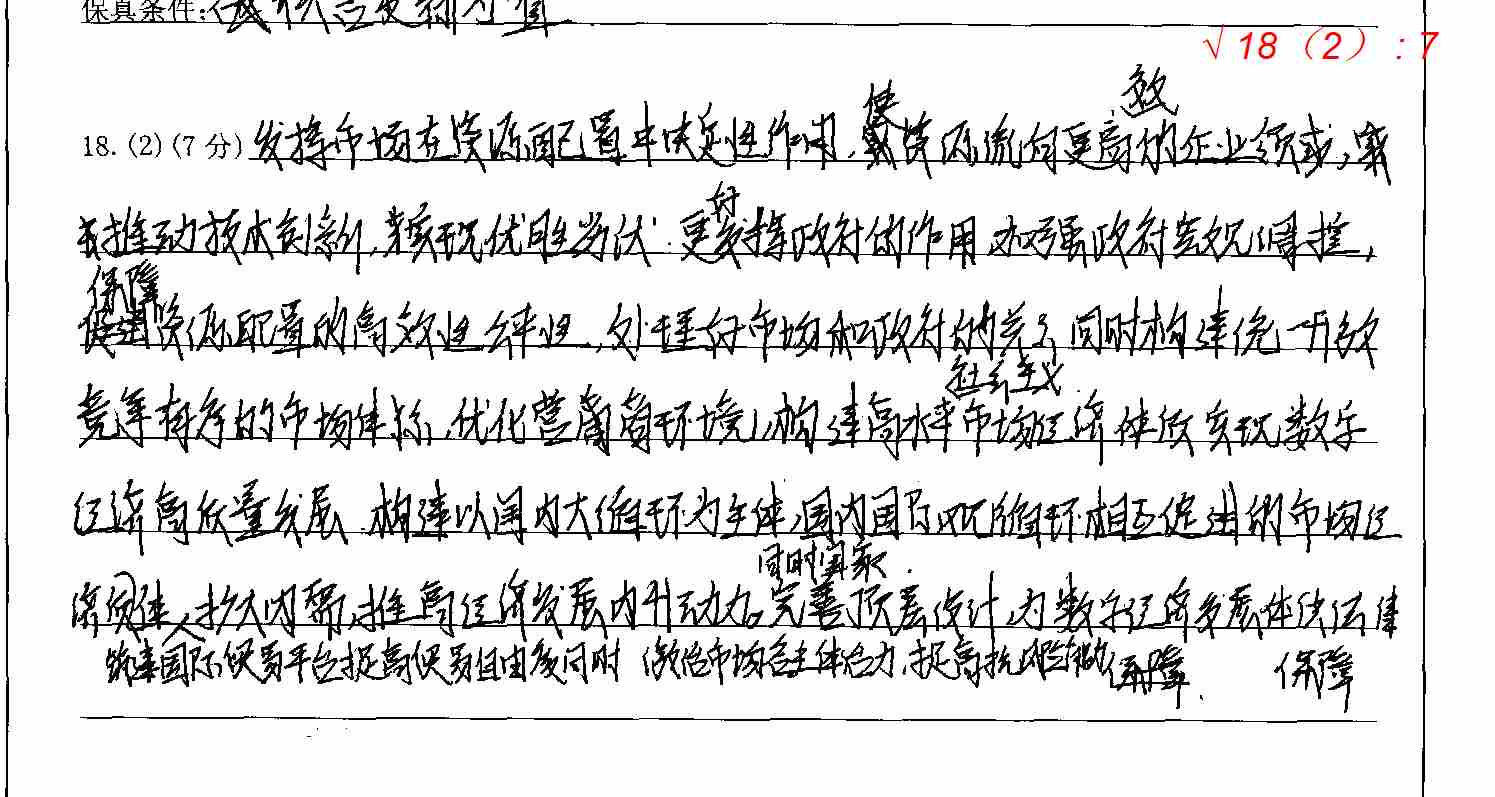 保真条件:
√ 18（2）：7
使 效
18. (2) (7 分) 发挥市场在资源配置中决定性作用，资源流向更高的企业领域，
推动技术创新，实现优胜劣汰．更好发挥政府的作用，加强政府宏观调控，
保障
资源配置的高效性公平性，处理好市场和政府的关系，同时构建统一开放
社会主义
竞争有序的市场体系，优化营商环境，构建高水平市场经济体制实现数字
经济高质量发展．构建以国内大循环为主体，国内国际双循环相互促进的市场经
同时国家
济，扩大内需，推高经济发展内升动力。完善顶层设计，为数字经济发展提供法律
筑建国际贸易平台提高贸易自由度同时 激活市场各主体活力，提高抗风险能力 保障